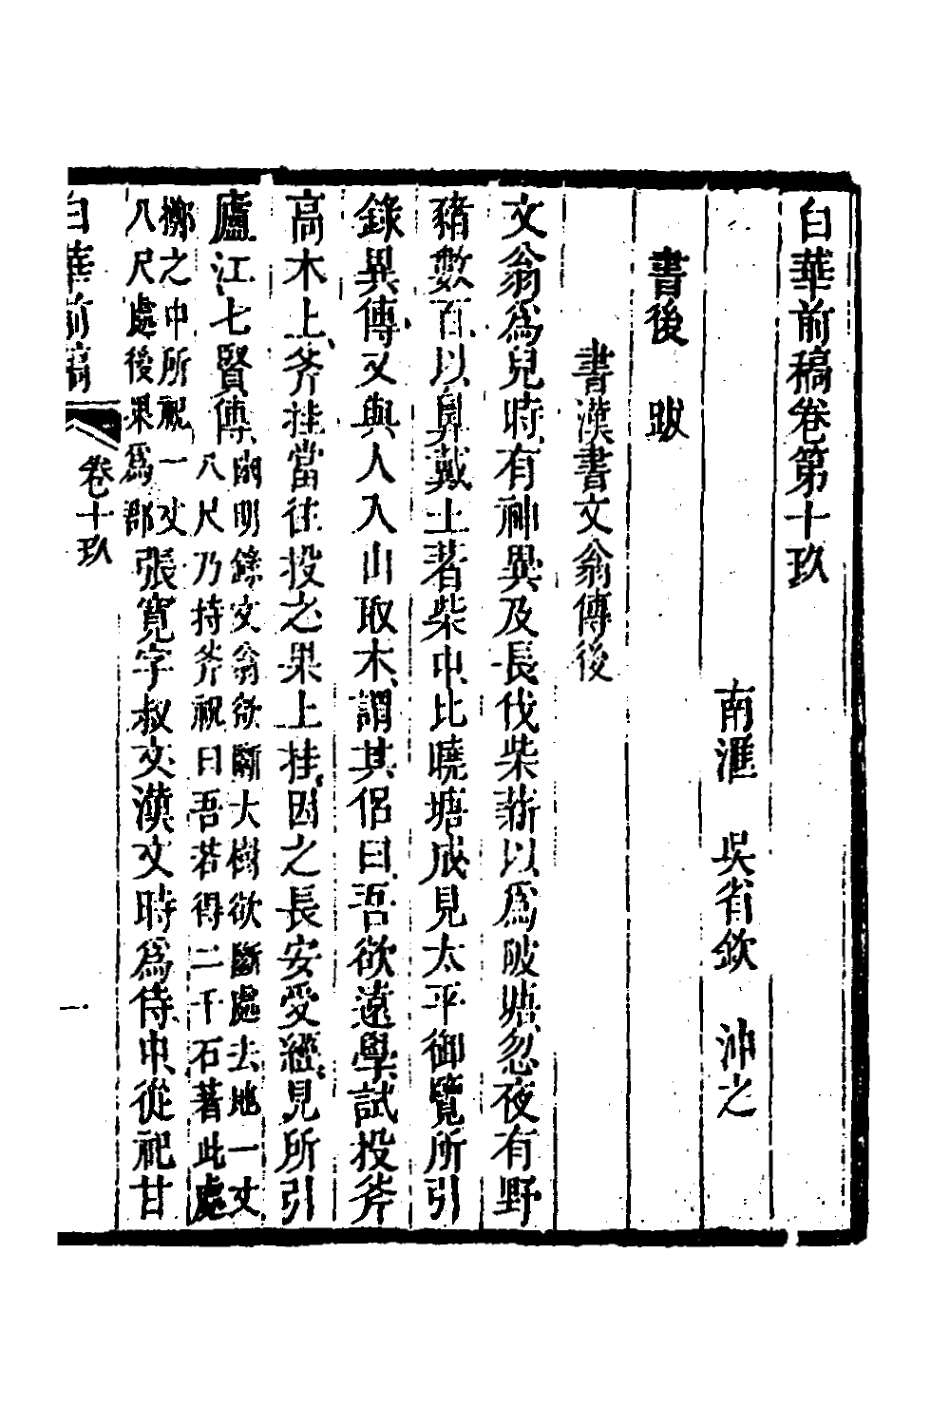 白華前稿卷第十玖
南滙　吳省欽　沖之
書後　跋
書漢書文翁傳後
文翁爲兒時有神異及長伐柴薪以爲陂塘忽夜有野
豬數百以鼻戴土著柴中比曉塘成見太平御覽所引
錄異傳又與人入山取木謂其侶曰吾欲遠學試投斧
高木上斧挂當往投之果上挂因之長安受經見所引
廬江七賢傳
幽明錄文翁欲斷大樹欲斷處去地一丈
八尺乃持斧祝曰吾若得二千石著此處
擲之中所祝一丈
八尺處後果爲郡
張寬字叔文漢文時爲侍中從祀甘
白華前稿
卷十玖
一